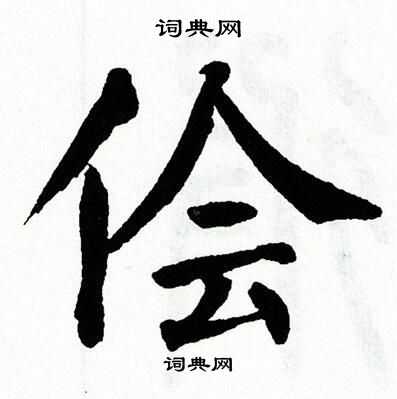 词典网
侩
词典网